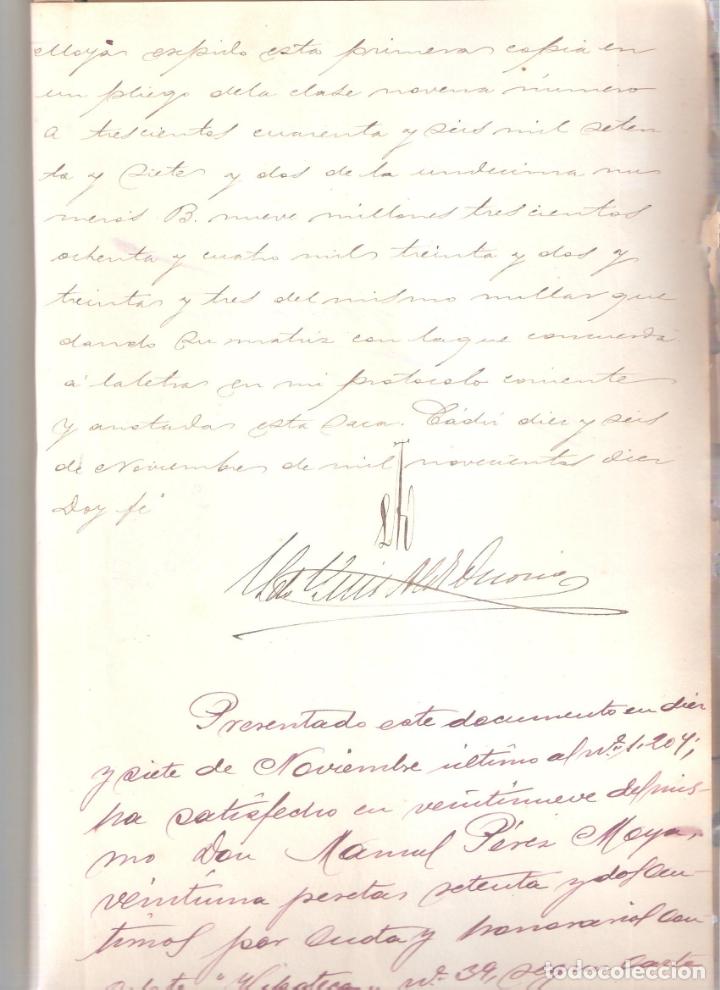 Moya expido esta primera copia en
un pliego de la clase novena número
A trescientos cuarenta y seis mil seten
ta y siete y dos de la undecima nu
meros B. nueve millones trescientos
ochenta y cuatro mil treinta y dos y
treinta y tres del mismo millar que
dando su matriz con la que concuerda
a la letra en mi protocolo corriente
y anotada esta saca. Cádiz diez y seis
de Noviembre de mil novecientos diez
Doy fé
Presentado este documento en diez
y siete de Noviembre último al nº 1.204;
ha satisfecho en veintinueve del mis-
mo Don Manuel Pérez Moya,
veintiuna pesetas setenta y dos cen-
timos por cuota y honorarios con
nº 39, según carta
todocoleccion